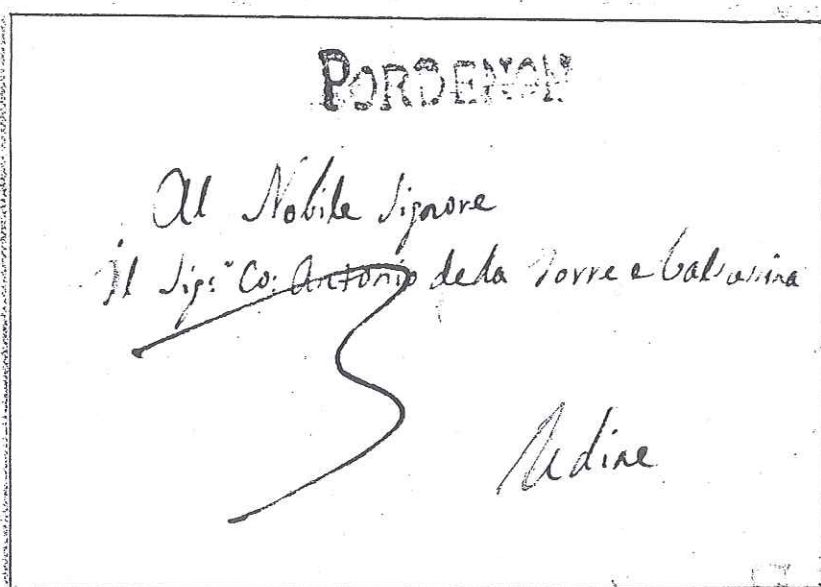 PORDENON
Al Nobile Signore
Il Sigr Co: Antonio della Torre e Valsassina
3
Udine